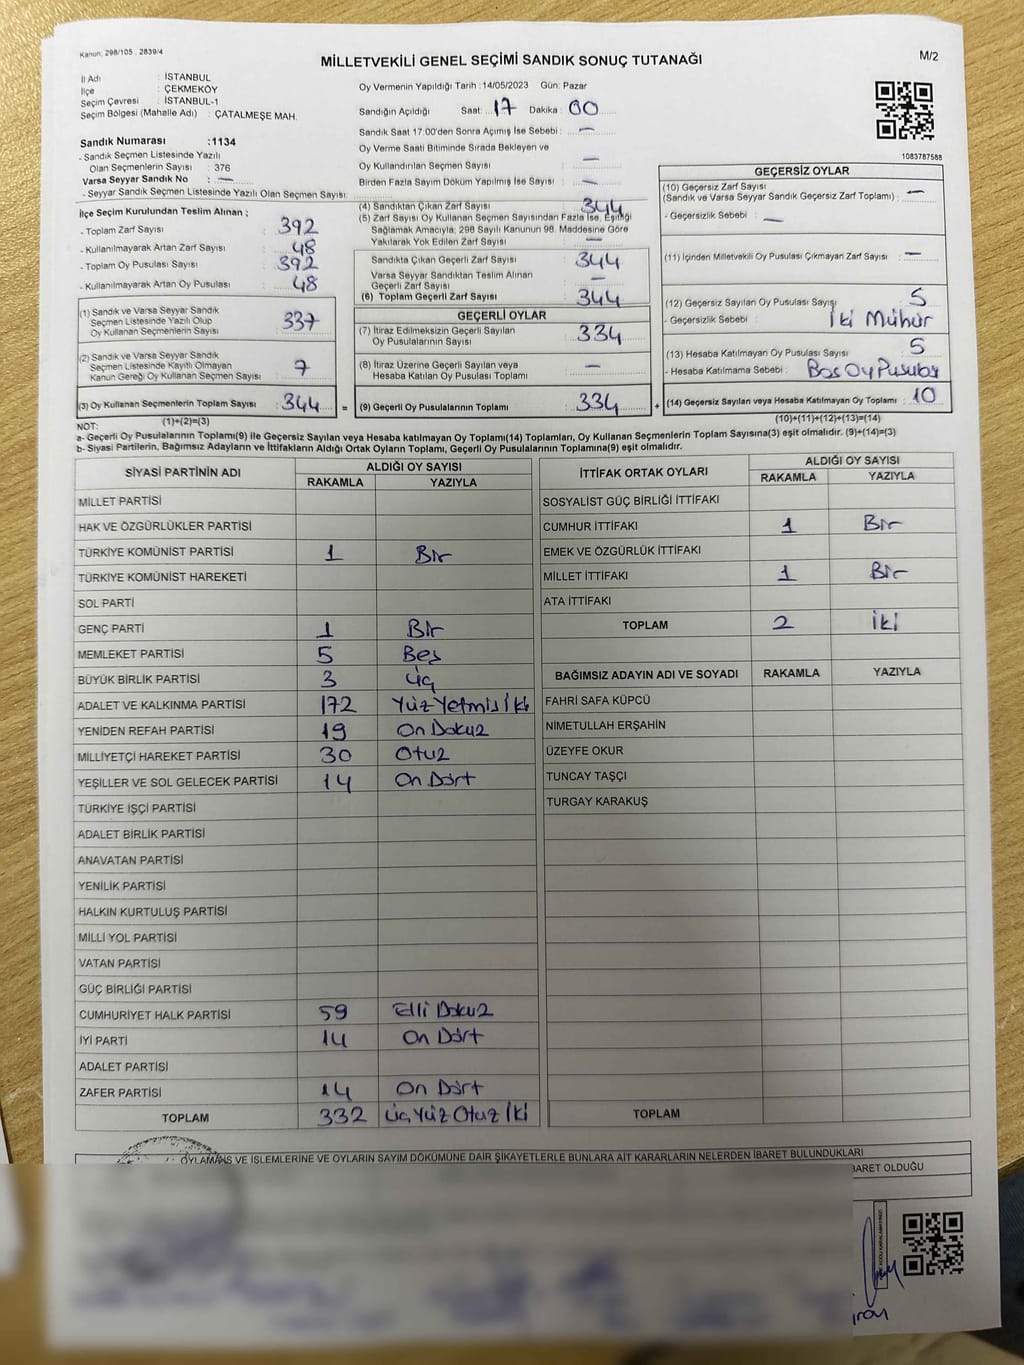 Kanun: 298/105 , 2839/4
MİLLETVEKİLİ GENEL SEÇİMİ SANDIK SONUÇ TUTANAĞI
M/2
İl Adı : İSTANBUL
İlçe : ÇEKMEKÖY
Seçim Çevresi : İSTANBUL-1
Seçim Bölgesi (Mahalle Adı) : ÇATALMEŞE MAH.
Oy Vermenin Yapıldığı Tarih :14/05/2023 Gün: Pazar
Sandığın Açıldığı Saat 17 Dakika : 00
Sandık Saat 17.00'den Sonra Açılmış İse Sebebi : —
Oy Verme Saati Bitiminde Sırada Bekleyen ve
Oy Kullandırılan Seçmen Sayısı : —
Birden Fazla Sayım Döküm Yapılmış İse Sayısı : —
1083787588
Sandık Numarası :1134
- Sandık Seçmen Listesinde Yazılı
Olan Seçmenlerin Sayısı : 376
Varsa Seyyar Sandık No : —
- Seyyar Sandık Seçmen Listesinde Yazılı Olan Seçmen Sayısı:
İlçe Seçim Kurulundan Teslim Alınan ;
- Toplam Zarf Sayısı : 392
- Kullanılmayarak Artan Zarf Sayısı : 48
- Toplam Oy Pusulası Sayısı : 392
- Kullanılmayarak Artan Oy Pusulası : 48
(1) Sandık ve Varsa Seyyar Sandık
Seçmen Listesinde Yazılı Olup
Oy Kullanan Seçmenlerin Sayısı : 337
(2) Sandık ve Varsa Seyyar Sandık
Seçmen Listesinde Kayıtlı Olmayan
Kanun Gereği Oy Kullanan Seçmen Sayısı : 7
(3) Oy Kullanan Seçmenlerin Toplam Sayısı : 344 =
(1)+(2)=(3)
(4) Sandıktan Çıkan Zarf Sayısı : 344
(5) Zarf Sayısı Oy Kullanan Seçmen Sayısından Fazla İse, Eşitliği
Sağlamak Amacıyla, 298 Sayılı Kanunun 98. Maddesine Göre
Yakılarak Yok Edilen Zarf Sayısı : —
Sandıkta Çıkan Geçerli Zarf Sayısı : 344
Varsa Seyyar Sandıktan Teslim Alınan
Geçerli Zarf Sayısı : —
(6) Toplam Geçerli Zarf Sayısı : 344
GEÇERLİ OYLAR
(7) İtiraz Edilmeksizin Geçerli Sayılan
Oy Pusulalarının Sayısı : 334
(8) İtiraz Üzerine Geçerli Sayılan veya
Hesaba Katılan Oy Pusulası Toplamı : —
(9) Geçerli Oy Pusulalarının Toplamı : 334 +
GEÇERSİZ OYLAR
(10) Geçersiz Zarf Sayısı
(Sandık ve Varsa Seyyar Sandık Geçersiz Zarf Toplamı) : —
- Geçersizlik Sebebi : —
(11) İçinden Milletvekili Oy Pusulası Çıkmayan Zarf Sayısı : —
(12) Geçersiz Sayılan Oy Pusulası Sayısı : 5
- Geçersizlik Sebebi : İki Mühür
(13) Hesaba Katılmayan Oy Pusulası Sayısı : 5
- Hesaba Katılmama Sebebi : Boş Oy Pusulası
(14) Geçersiz Sayılan veya Hesaba Katılmayan Oy Toplamı : 10
(10)+(11)+(12)+(13)=(14)
NOT:
a- Geçerli Oy Pusulalarının Toplamı(9) ile Geçersiz Sayılan veya Hesaba katılmayan Oy Toplamı(14) Toplamları, Oy Kullanan Seçmenlerin Toplam Sayısına(3) eşit olmalıdır. (9)+(14)=(3)
b- Siyasi Partilerin, Bağımsız Adayların ve İttifakların Aldığı Ortak Oyların Toplamı, Geçerli Oy Pusulalarının Toplamına(9) eşit olmalıdır.
SİYASİ PARTİNİN ADI ALDIĞI OY SAYISI
RAKAMLA YAZIYLA
MİLLET PARTİSİ
HAK VE ÖZGÜRLÜKLER PARTİSİ
TÜRKİYE KOMÜNİST PARTİSİ 1 Bir
TÜRKİYE KOMÜNİST HAREKETİ
SOL PARTİ
GENÇ PARTİ 1 Bir
MEMLEKET PARTİSİ 5 Beş
BÜYÜK BİRLİK PARTİSİ 3 Üç
ADALET VE KALKINMA PARTİSİ 172 Yüz Yetmiş İki
YENİDEN REFAH PARTİSİ 19 On Dokuz
MİLLİYETÇİ HAREKET PARTİSİ 30 Otuz
YEŞİLLER VE SOL GELECEK PARTİSİ 14 On Dört
TÜRKİYE İŞÇİ PARTİSİ
ADALET BİRLİK PARTİSİ
ANAVATAN PARTİSİ
YENİLİK PARTİSİ
HALKIN KURTULUŞ PARTİSİ
MİLLİ YOL PARTİSİ
VATAN PARTİSİ
GÜÇ BİRLİĞİ PARTİSİ
CUMHURİYET HALK PARTİSİ 59 Elli Dokuz
İYİ PARTİ 14 On Dört
ADALET PARTİSİ
ZAFER PARTİSİ 14 On Dört
TOPLAM 332 Üç Yüz Otuz İki
İTTİFAK ORTAK OYLARI ALDIĞI OY SAYISI
RAKAMLA YAZIYLA
SOSYALİST GÜÇ BİRLİĞİ İTTİFAKI
CUMHUR İTTİFAKI 1 Bir
EMEK VE ÖZGÜRLÜK İTTİFAKI
MİLLET İTTİFAKI 1 Bir
ATA İTTİFAKI
TOPLAM 2 İki
BAĞIMSIZ ADAYIN ADI VE SOYADI RAKAMLA YAZIYLA
FAHRİ SAFA KÜPCÜ
NİMETULLAH ERŞAHİN
ÜZEYFE OKUR
TUNCAY TAŞÇI
TURGAY KARAKUŞ
TOPLAM
OYLAMA İŞ VE İŞLEMLERİNE VE OYLARIN SAYIM DÖKÜMÜNE DAİR ŞİKAYETLERLE BUNLARA AİT KARARLARIN NELERDEN İBARET BULUNDUKLARI
İBARET OLDUĞU